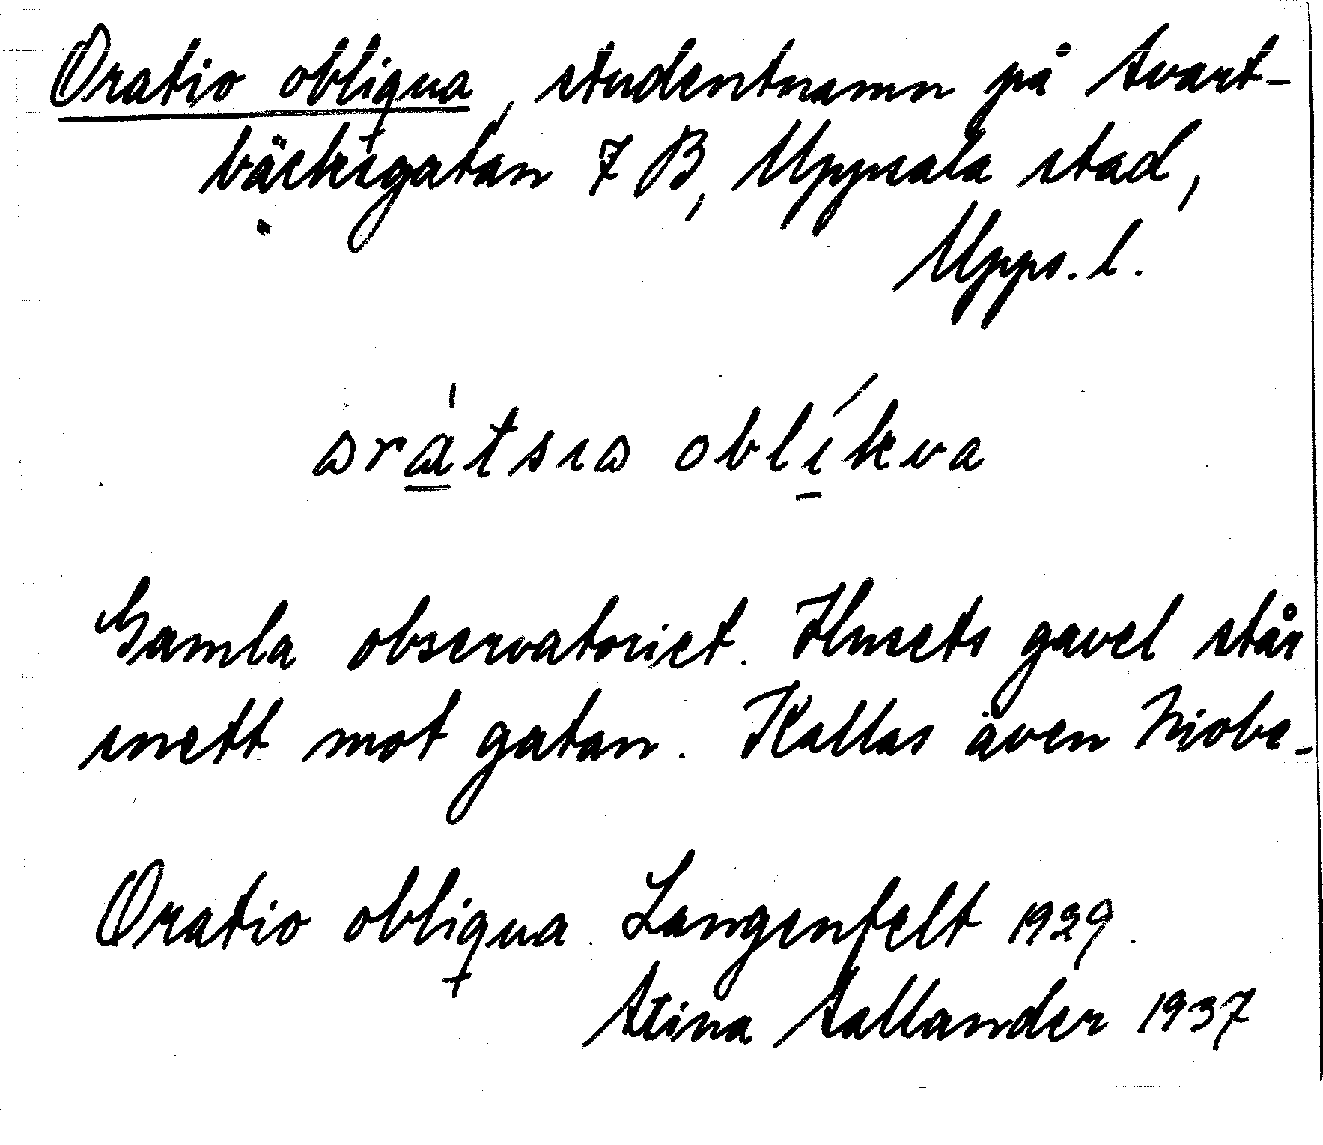 Oratio obliqua, studentnamn på Svart-
bäcksgatan 7 B, Uppsala stad,
Upps. l.
arátsia oblíkva
Gamla observatoriet. Husets gavel står
snett mot gatan. Kallas även Niobe.
Oratio obliqua Langenfelt 1929.
Stina Sallander 1937